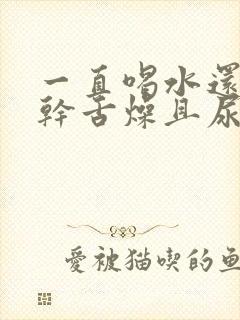 一直喝水還
幹舌燥且尿
愛被猫喫的魚